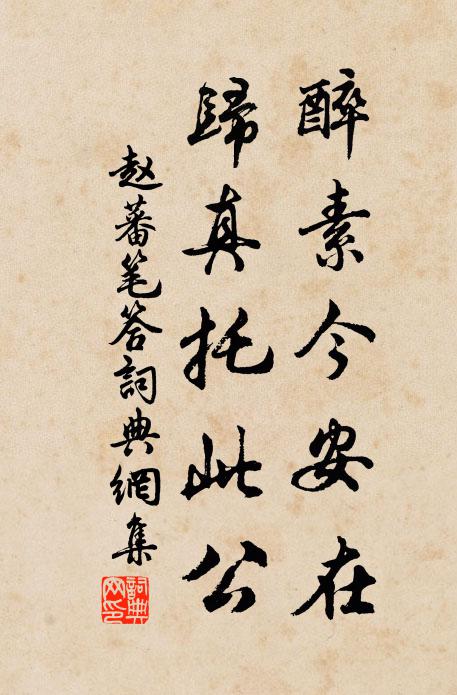 醉素今安在
歸真托此公
赵蕃笔答詞典網集
詞典网印